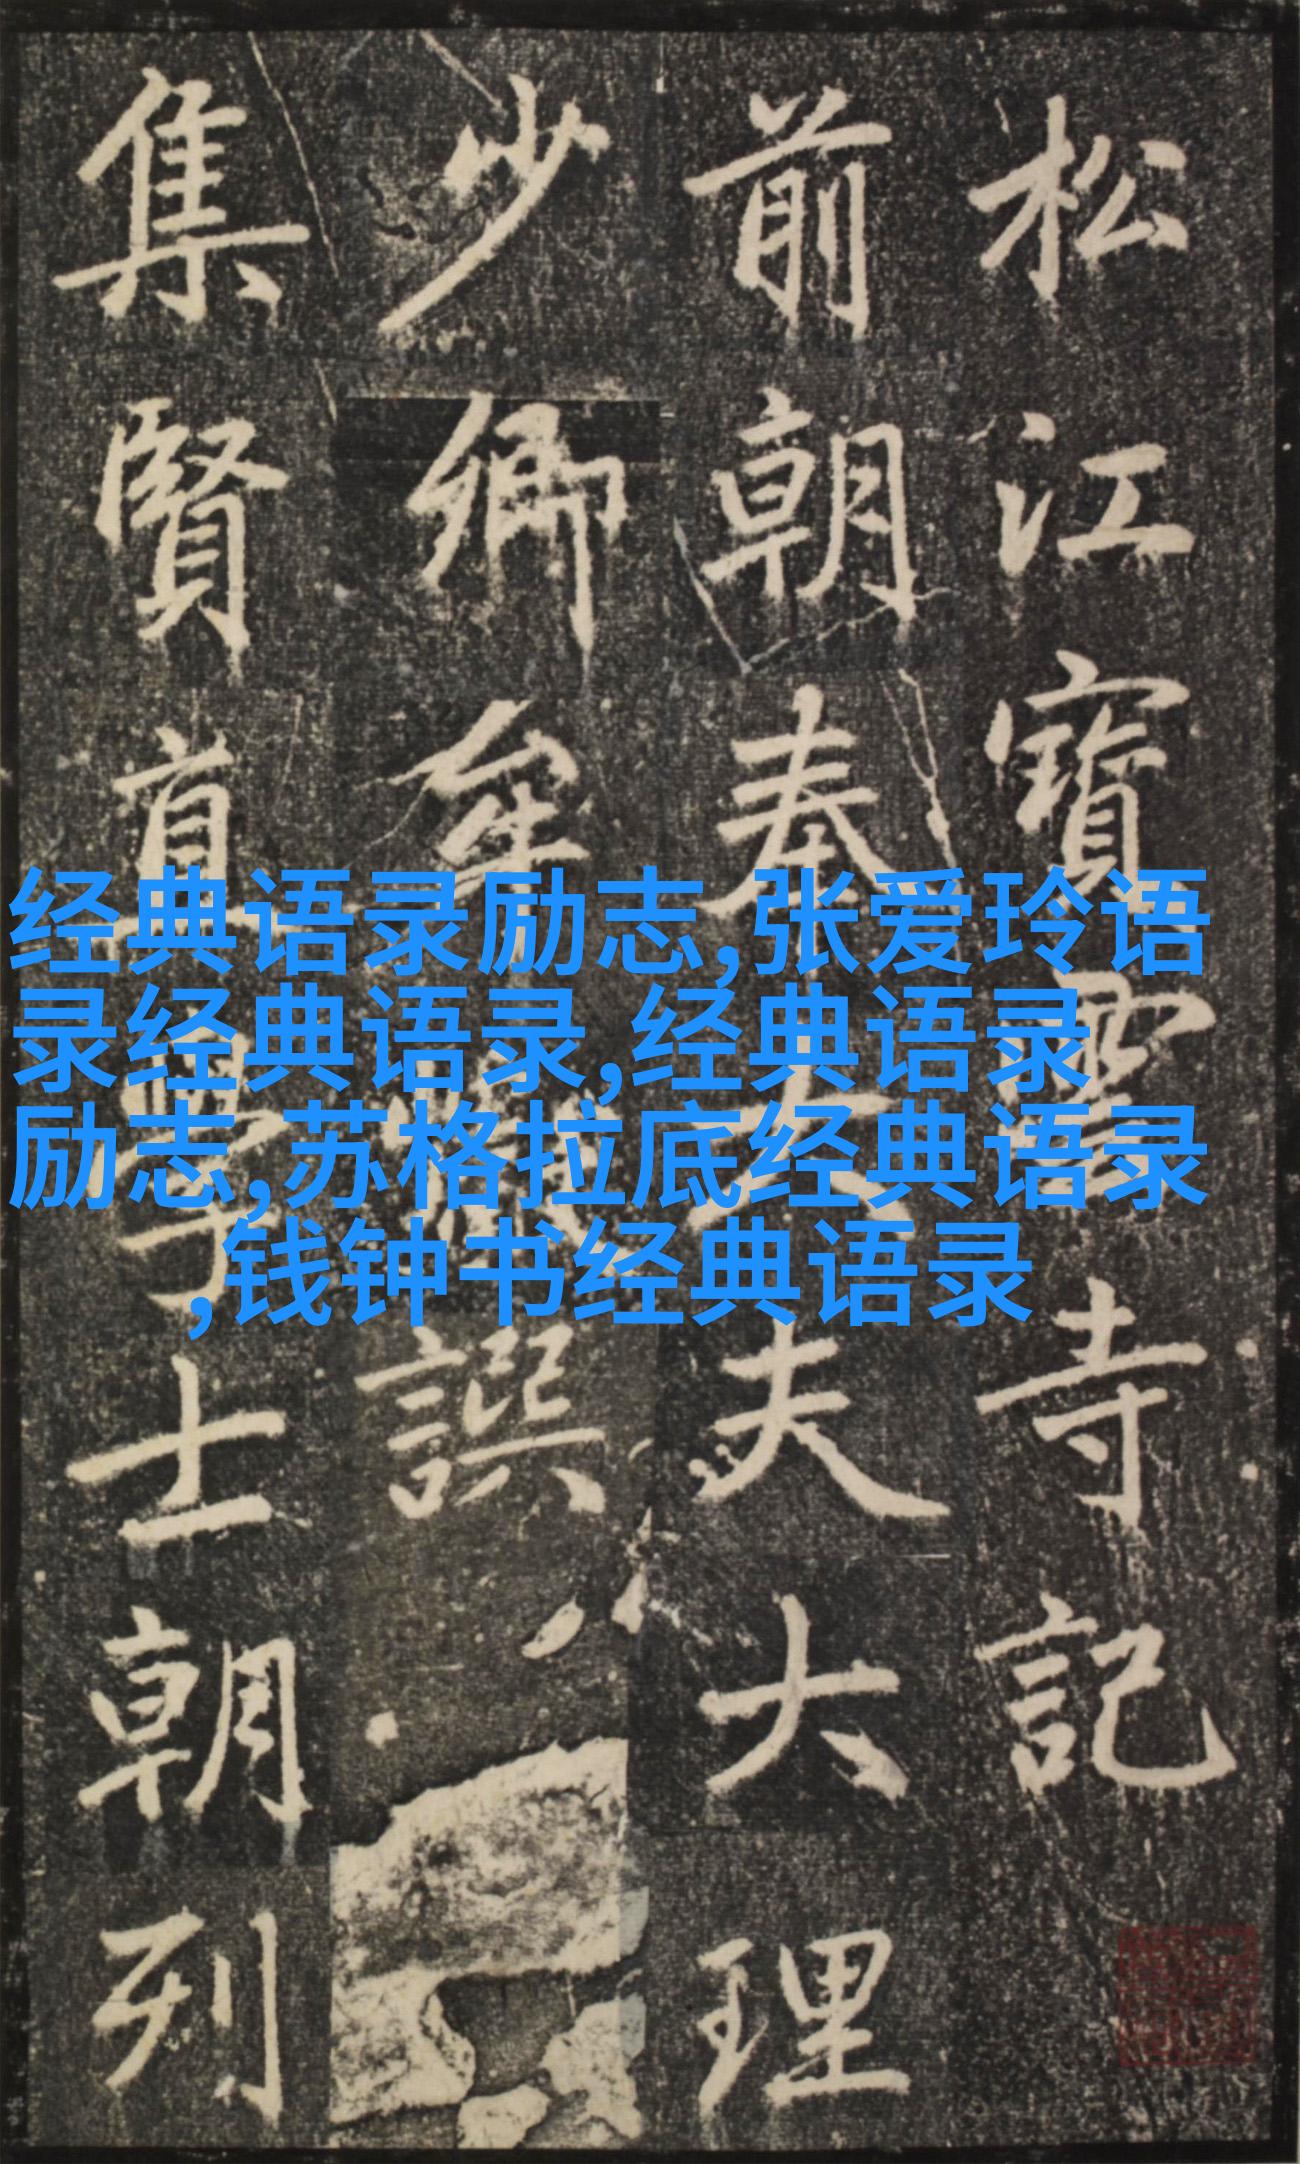 松江寶雲寺記
前朝奉大夫大理
少卿牟巘譔
集賢直學士朝列
经典语录励志,张爱玲语
录经典语录,经典语录
励志,苏格拉底经典语录
,钱钟书经典语录